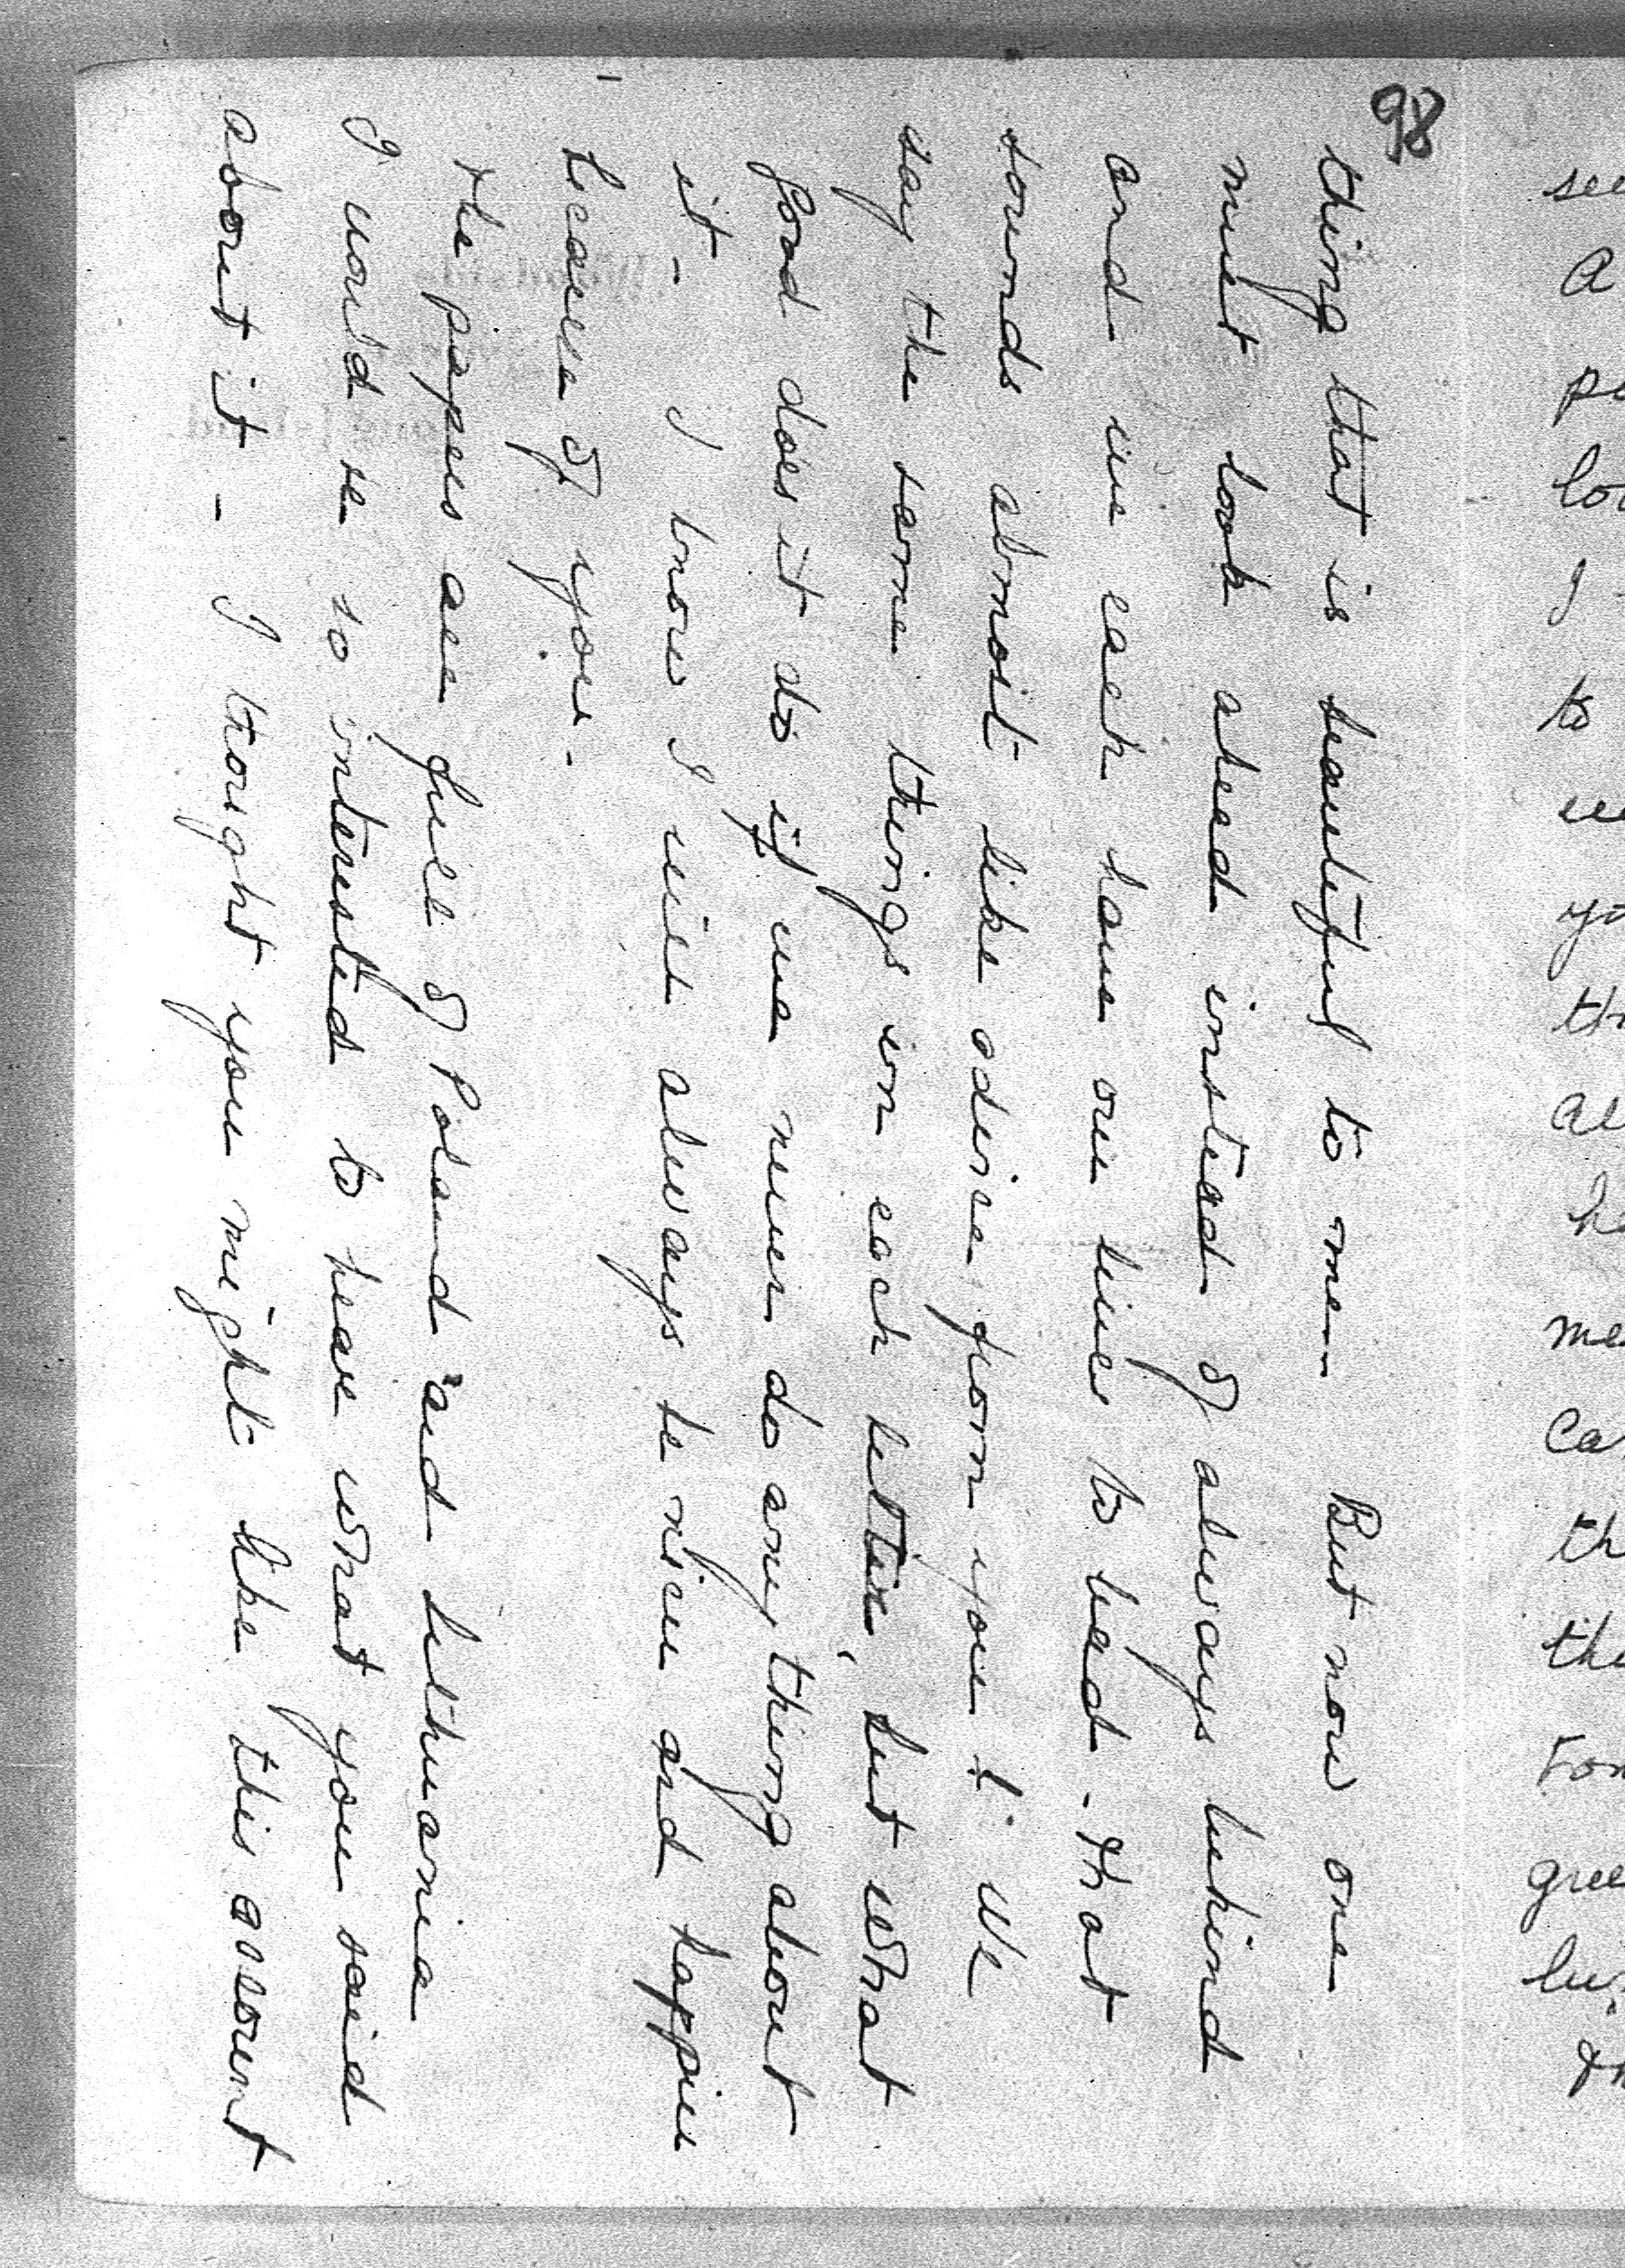 98
thing that is beautiful to me. But now one
must look ahead instead of always behind
and we each have our lives to lead - that
sounds almost like advice from you! We
say the same things in each letter, but what
good does it do if we never do anything about
it - I know I will always be nicer and happier
because of you -
The papers are full of Poland and Lithuania
I would be so interested to hear what you said
about it - I thought you might like this account
see
A
to
me
Ca
th
the